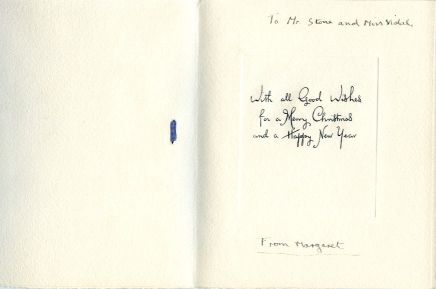 To Mr Stone and Miss Vidal.
With all Good Wishes
for a Merry Christmas
and a Happy New Year
From Margaret